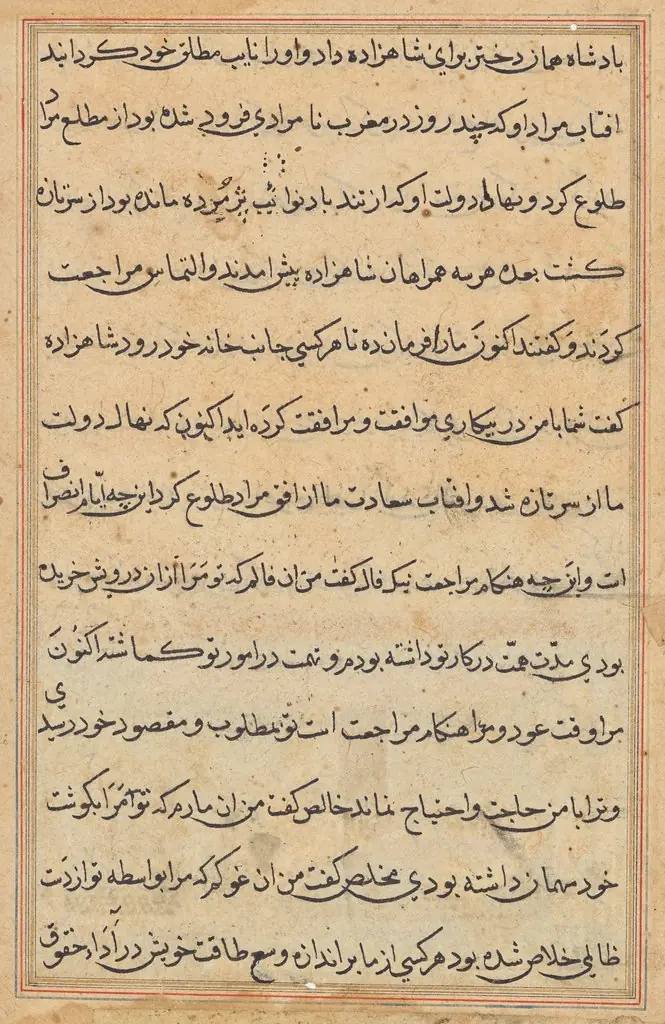 بادشاه همان دختر برای شاهزاده داد و او را نایب مطلق خود کردانید
افتاب مراد او که چند روز در مغرب نا مرادی فرود شده بود از مطلع مراد
طلوع کرد و نهال دولت او که از تند باد نوائب پژمرده مانده بود از سر تازه
کشت بعده هر سه همراهان شاهزاده پیش امدند و التماس مراجعت
کردند و کفتند اکنون ما را فرمان ده تا هر کسی جانب خانه خود رود شاهزاده
کفت شما با من در بیکاری موافقت و مرافقت کرده اید اکنون که نهال دولت
ما از سر تازه شد و افتاب سعادت ما از افق مراد طلوع کرد این چه ایام انصراف
است و این چه هنکام مراجعت نیک فال کفت من ان فالم که تو مرا از ان درویش خریده
بودی مدت همت در کار تو داشته بودم و نهمت در امور تو کماشته اکنون
مرا وقت عود و مرا هنکام مراجعت است تو بمطلوب و مقصود خود رسیدی
و ترا با من حاجت و احتیاج نماند خالص کفت من ان مارم که تو مرا بکوشت
خود مهمان داشته بودی مخلص کفت من ان غوکم که مرا بواسطه تو از دست
ظالمی خلاص شده بود هر کسی از ما بر اندازه وسع طاقت خویش در آداء حقوق